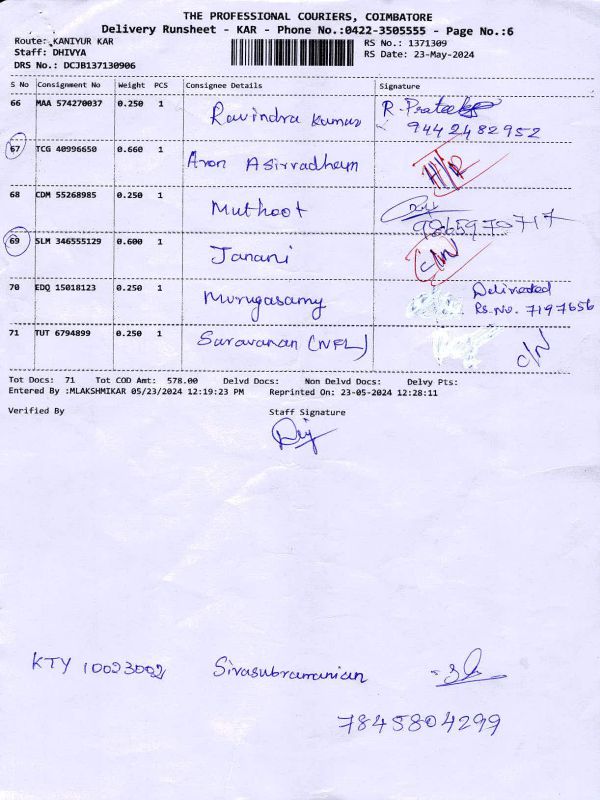 THE PROFESSIONAL COURIERS, COIMBATORE
Delivery Runsheet - KAR - Phone No.:0422-3505555 - Page No.:6
Route: KANIYUR KAR RS No.: 1371309
Staff: DHIVYA RS Date: 23-May-2024
DRS No.: DCJB137130906
S No Consignment No Weight PCS Consignee Details Signature
66 MAA 574270037 0.250 1 Ravindra Kumar R. Prateek
9442482952
67 TCG 40996650 0.660 1 Aron Asirvadham H/R
68 CDM 55268985 0.250 1 Muthoot
9865970717
69 SLM 346555129 0.600 1 Janani C/N
70 EDQ 15018123 0.250 1 Murugasamy Delivected
RS.NO. 7197656
71 TUT 6794899 0.250 1 Saravanan (NFL) C/N
Tot Docs: 71 Tot COD Amt: 578.00 Delvd Docs: Non Delvd Docs: Delvy Pts:
Entered By :MLAKSHMIKAR 05/23/2024 12:19:23 PM Reprinted On: 23-05-2024 12:28:11
Verified By Staff Signature
KTY 10023002 Sivasubramanian
7845804299